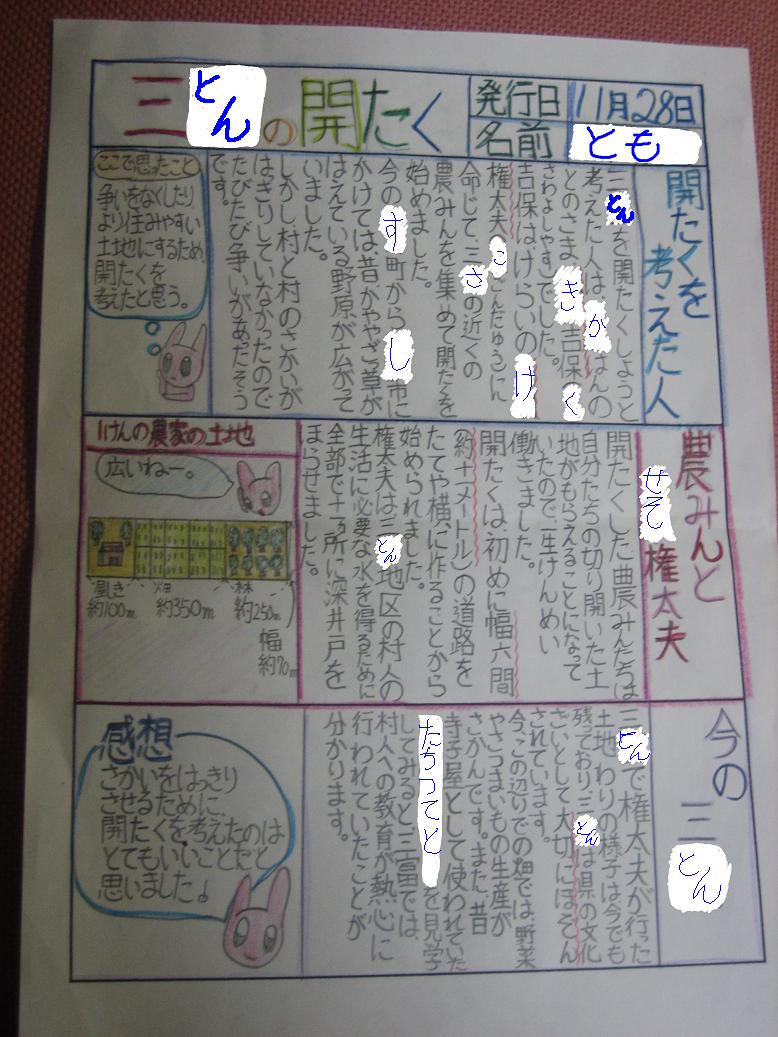 三とんの開たく
発行日 11月28日
名前 とも
開たくを
考えた人
三とんを開たくしようと
考えた人は、かはんの
とのさま きさわよしやす でした。
吉保はけらいのけ
権太夫(こごんだゆう)に
命じて三さの近くの
農みんを集めて開たくを
始めました。
今のす町からし市に
かけては昔かややざっ草が
はえている野原が広がって
いました。
しかし村と村のさかいが
はっきりしていなかったので
たびたび争いがあったそう
です。
ここで思ったこと
争いをなくしたり
より住みやすい
土地にするため、
開たくを
考えたと思う。
農みんと
せそ権太夫
開たくした農みんたちは
自分たちの切り開いた土
地がもらえることになって
いたので、一生けんめい
働きました。
開たくは、初めに幅六間
(約十一メートル)の道路を
たてや横に作ることから
始められました。
権太夫は三とん地区の村人の
生活に必要な水を得るために
全部で十一ヶ所に深井戸を
ほらせました。
1けんの農家の土地
広いねー。
屋しき
約100m
畑
約350m
林
約250m
幅
約70m
今の
三とん
三とんで権太夫が行った
土地わりの様子は今でも
残っており三とんは県の文化
ざいとして大切にほぞん
されています。
今、この辺りでの畑では、野菜
やさつまいもの生産が
さかんです。また、昔
寺子屋として使われていた
たちつてとを見学
してみると三富では、
村人への教育が熱心に
行われていたことが
分かります。
感想
さかいをはっきり
させるために、
開たくを考えたのは
とてもいいことだと
思いました。